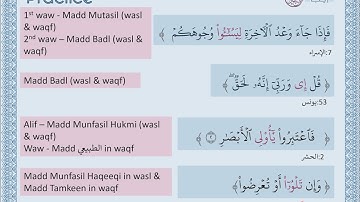 Practice
1st waw - Madd Mutasil (wasl & waqf)
2nd waw – Madd Badl (wasl & waqf)
فَإِذَا جَآءَ وَعْدُ ٱلْـَٔاخِرَةِ لِيَسُـۥٓـُٔوا۟ وُجُوهَكُمْ
7:الإسراء
Madd Badl (wasl & waqf)
قُلْ إِى وَرَبِّىٓ إِنَّهُۥ لَحَقٌّۖ
53:يونس
Alif – Madd Munfasil Hukmi (wasl & waqf)
Waw - Madd الطبيعي in waqf
فَٱعْتَبِرُوا۟ يَـٰٓأُو۟لِى ٱلْأَبْصَـٰرِ ٢
2:الحشر
Madd Munfasil Haqeeqi in wasl &
Madd Tamkeen in waqf
وَإِن تَلْوُۥٓا۟ أَوْ تُعْرِضُوا۟